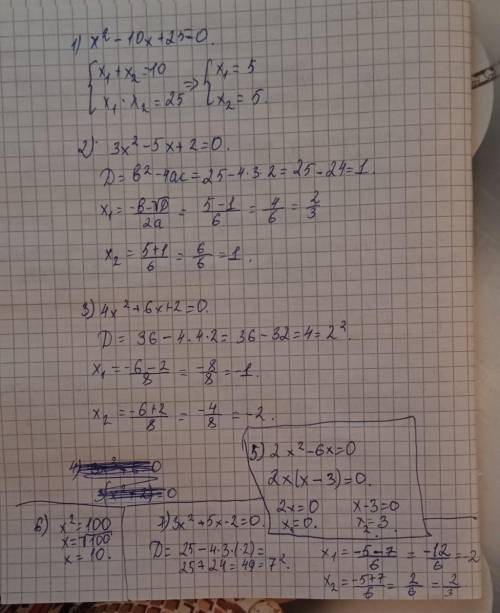 1) x² - 10x + 25 = 0.
{ x₁ + x₂ = 10 ⇒ { x₁ = 5
x₁ · x₂ = 25 x₂ = 5.
2) 3x² - 5x + 2 = 0.
D = b² - 4ac = 25 - 4·3·2 = 25 - 24 = 1.
x₁ = (-b-√D)/2a = (5-1)/6 = 4/6 = 2/3
x₂ = (5+1)/6 = 6/6 = 1.
3) 4x² + 6x + 2 = 0.
D = 36 - 4·4·2 = 36 - 32 = 4 = 2².
x₁ = (-6-2)/8 = -8/8 = -1.
x₂ = (-6+2)/8 = -4/8 = -2.
4)
5) 2x² - 6x = 0
2x(x - 3) = 0.
2x = 0 x - 3 = 0
x₁ = 0. x₂ = 3.
6) x² = 100
x = √100
x = 10.
7) 3x² + 5x - 2 = 0.
D = 25 - 4·3·(-2) =
25 + 24 = 49 = 7².
x₁ = (-5-7)/6 = -12/6 = -2
x₂ = (-5+7)/6 = 2/6 = 2/3